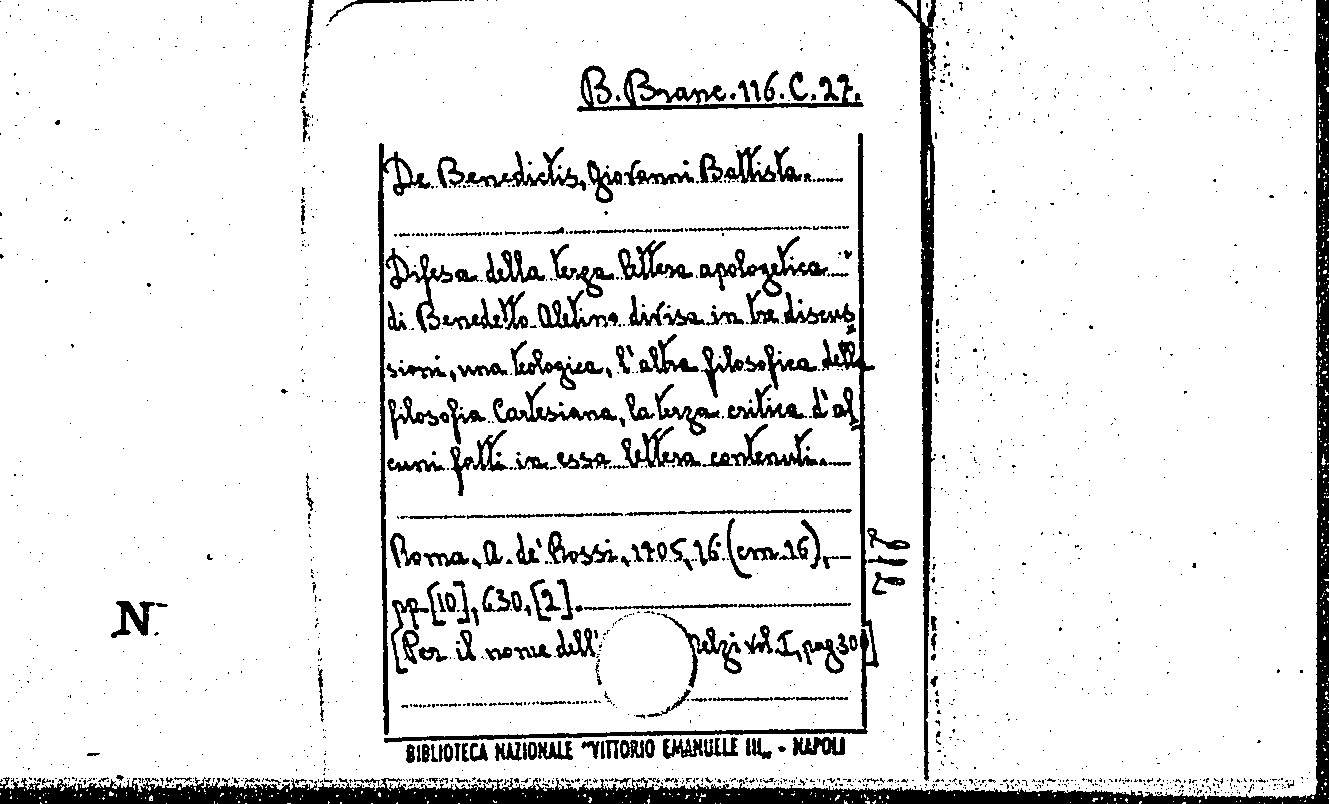 B. Branc. 116. C. 27.
De Benedictis, Giovanni Battista.
Difesa della terza lettera apologetica
di Benedetto Aletino divisa in tre discus
sioni, una teologica, l'altra filosofica della
filosofia Cartesiana, la terza critica d'al
cuni fatti in essa lettera contenuti.
Roma, A. de' Rossi, 1705, 16° (cm. 16),
pp. [10], 630, [2].
[Per il nome dell' Melzi vol. I, pag 30]
N
BIBLIOTECA NAZIONALE "VITTORIO EMANUELE III„ - NAPOLI